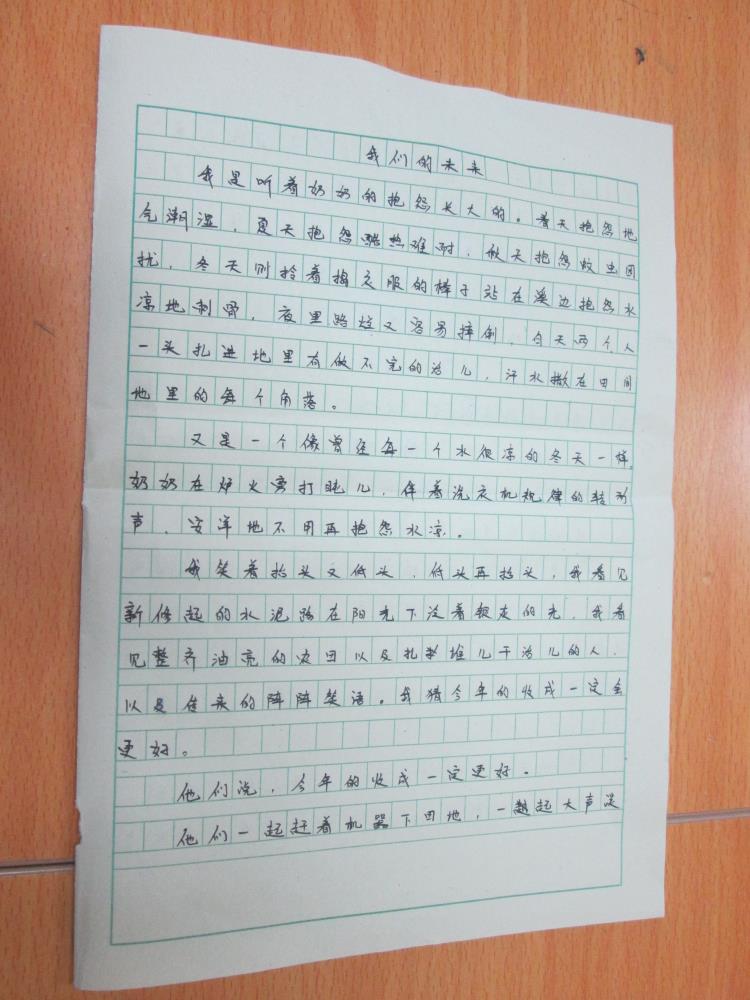 我们的未来
我是听着奶奶的抱怨长大的。春天抱怨地
气潮湿，夏天抱怨酷热难耐，秋天抱怨蚊虫困
扰，冬天则拎着捣衣服的棒子站在溪边抱怨水
凉地刺骨，夜里路烂又容易摔倒，白天两个人
一头扎进地里有做不完的活儿，汗水撒在田间
地里的每个角落。
又是一个像曾经每一个水很凉的冬天一样，
奶奶在炉火旁打盹儿，伴着洗衣机规律的转动
声，安详地不用再抱怨水凉。
我笑着抬头又低头，低头再抬头，我看见
新修起的水泥路在阳光下泛着银灰的光，我看
见整齐油亮的农田以及扎堆儿干活儿的人，
以及传来的阵阵笑语。我猜今年的收成一定会
更好。
他们说，今年的收成一定更好。
他们一起赶着机器下田地，一起大声是